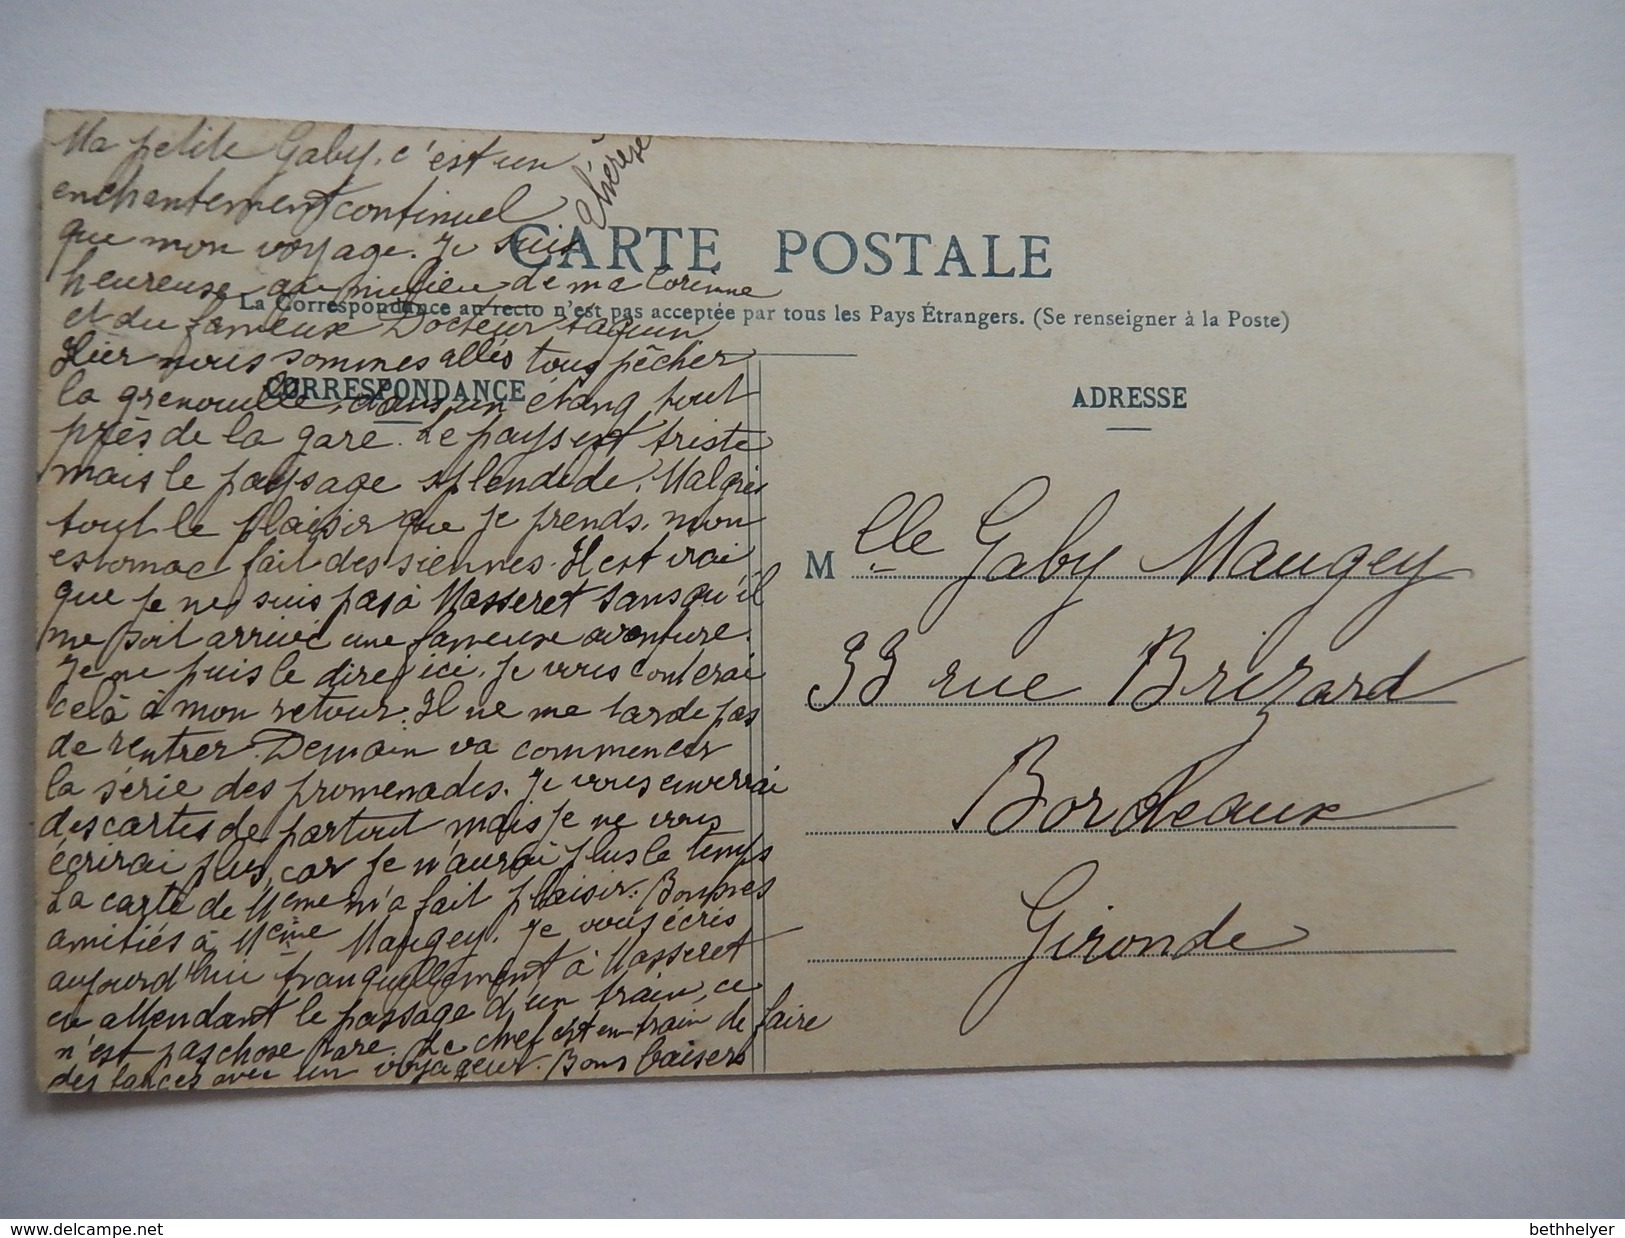 Ma petite Gaby, c'est un
enchantement continuel
que mon voyage. Je suis
heureuse au milieu de ma Corinne
et du fameux Docteur taquin
Hier nous sommes allés tous pêcher
la grenouille, dans un étang tout
près de la gare. Le pays est triste
mais le paysage splendide. Malgrés
tout le plaisir que je prends, mon
estomac fait des siennes. Il est vrai
que je ne suis pas à Masseret sans qu'il
me soit arrivé une fameuse aventure.
Je ne puis le dire ici. Je vous conterai
celà à mon retour. Il ne me tarde pas
de rentrer. Demain va commencer
la série des promenades. Je vous enverrai
des cartes de partout mais je ne vous
écrirai plus, car je n'aurai plus le temps
La carte de Mème m'a fait plaisir. Bonnes
amitiés à Mème Maugey. Je vous écris
aujourd'hui tranquillement à Masseret
en attendant le passage d'un train, ce
n'est pas chose rare. Le chef est en train de faire
des lances avec un voyageur. Bons baisers
Thérèse
CARTE POSTALE
La Correspondance au recto n'est pas acceptée par tous les Pays Étrangers. (Se renseigner à la Poste)
CORRESPONDANCE
ADRESSE
Melle Gaby Maugey
33 rue Brizard
Bordeaux
Gironde
http://www.delcampe.net
bethhelyer